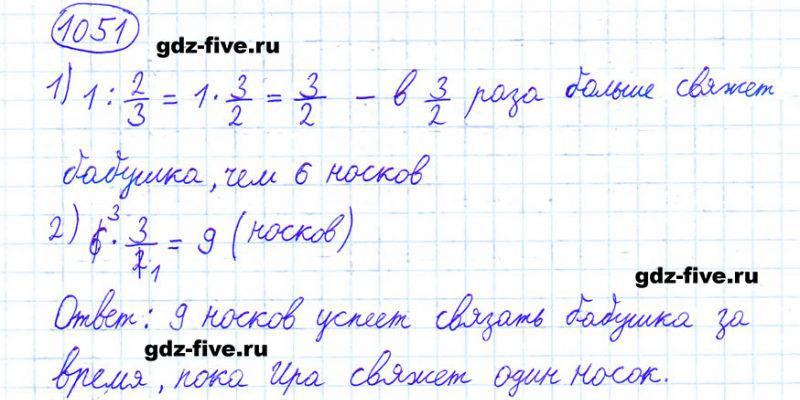 1051
gdz-five.ru
1) 1 : 2/3 = 1 · 3/2 = 3/2 – в 3/2 раза больше свяжет
бабушка, чем 6 носков
2) 6 3 · 3/2 1 = 9 (носков)
gdz-five.ru
Ответ: 9 носков успеет связать бабушка за
gdz-five.ru
время, пока Ира свяжет один носок.